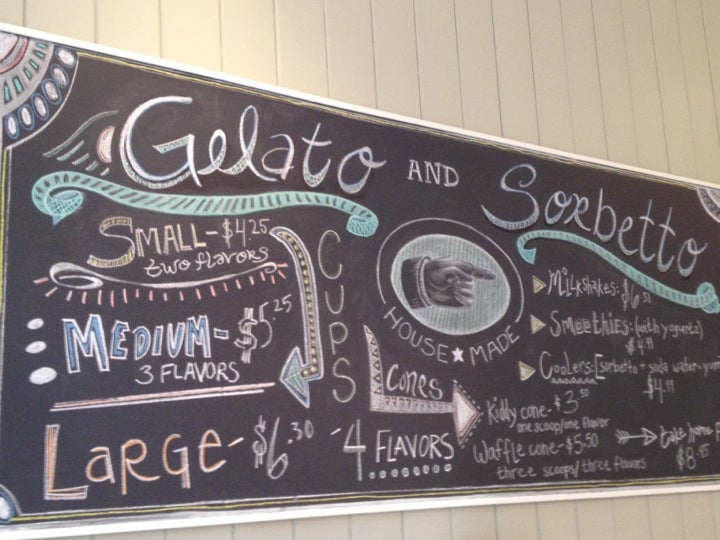 Gelato AND Sorbetto
SMALL-$4.25
two flavors
MEDIUM-$5.25
3 FLAVORS
LARGE-$6.30 4 FLAVORS
CUPS
HOUSE★MADE
CONES
Kiddy cone-$3.50
one scoop/one flavor
Waffle cone-$5.50
three scoops/three flavors
Milkshakes-$6.50
Sm@@thies-(with yogurt)
$4.99
Coolers-[sorbetto + soda water-
$4.99
take home